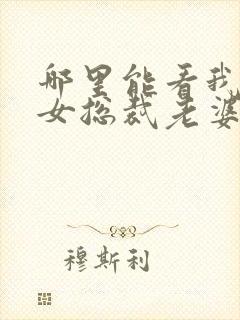 那里能看我
女总裁老婆
穆斯利